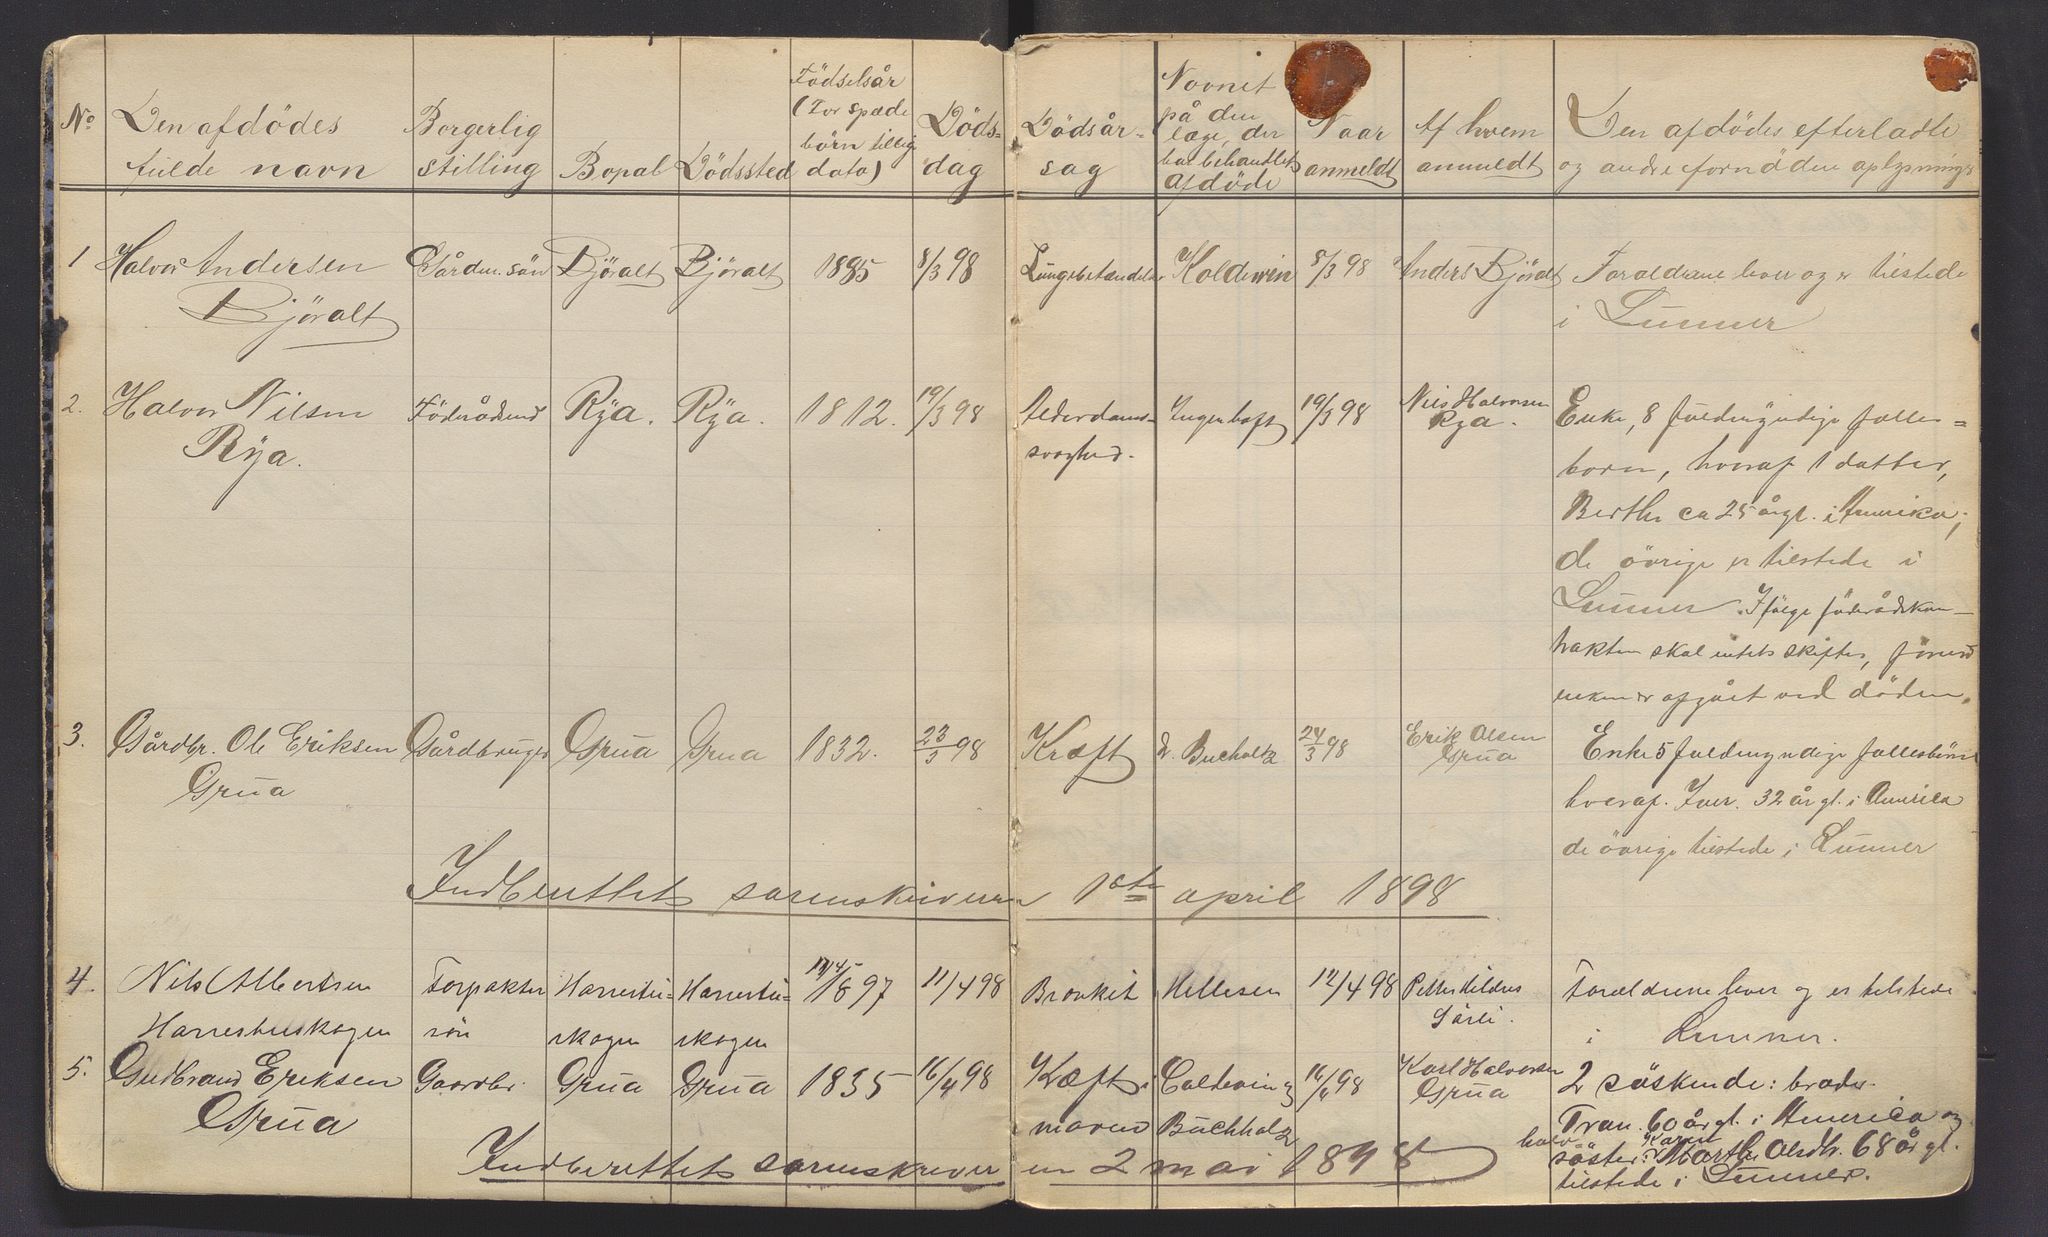 No Den afdödes fulde navn
Borgerlig stilling
Bopæl
Dödssted
Födselsår (For spæde börn tillige data)
Dödsdag
Dödsårsag
Navnet på den læge, der har behandlet afdöde
Naar anmeldt
Af hvem anmeldt
Den afdödes efterladte og andre fornödne oplysninger
1 Halvor Andersen Gårdm. sön Björalt Björalt 1885 8/3 98 Lungebetændelse Koldevin 8/3 98 Anders Björalt Forældrene lever og er tilstede
Björalt i Lunner
2. Halvor Nilsen Föderådsmd Rya. Rya. 1812. 19/3 98 Alderdoms- Ingen havt 19/3 98 Nils Halvorsen Enke, 8 fuldmyndige fælles=
Rya. svaghed. Rya. börn, hvoraf 1 datter,
Berthe ca 25 årgl. i Amerika;
de övrige er tilstede i
Lunner. Ifölge föderådskon-
trakten skal intet skiftes, förend
enken er afgået ved döden.
3. Gårdbr. Ole Eriksen Gårdbruger Grua Grua 1832. 23/3 98 Kræft d. Bucholtz 24/3 98 Erik Olsen Enke 5 fuldmyndige fællesbörn
Grua Grua hvoraf. Iver. 32 år gl. i Amerika
de övrige tilstede i Lunner
Indberettet sorenskriveren 1ste april 1898
4. Nils Albertsen Forpakter Harrestu- Harrestu- 1897 11/4 98 Bronkit Hellesen 12/4 98 Petter Forældrene lever og er tilstede
Harrestuskogen sön skogen skogen i Lunner.
5. Gudbrand Eriksen Gaardbr. Grua Grua 1835 16/4 98 Kræft i Coldevin og 16/4 98 Karl Halvorsen 2 söskende: broder
Grua maven Buchholz Grua Iran. 60 år gl. i Amerika og
halv-
söster: Karen Marthe Olsdtr. 68 år gl.
Indberettet sorenskriveren 2 mai 1898 tilstede i Lunner.